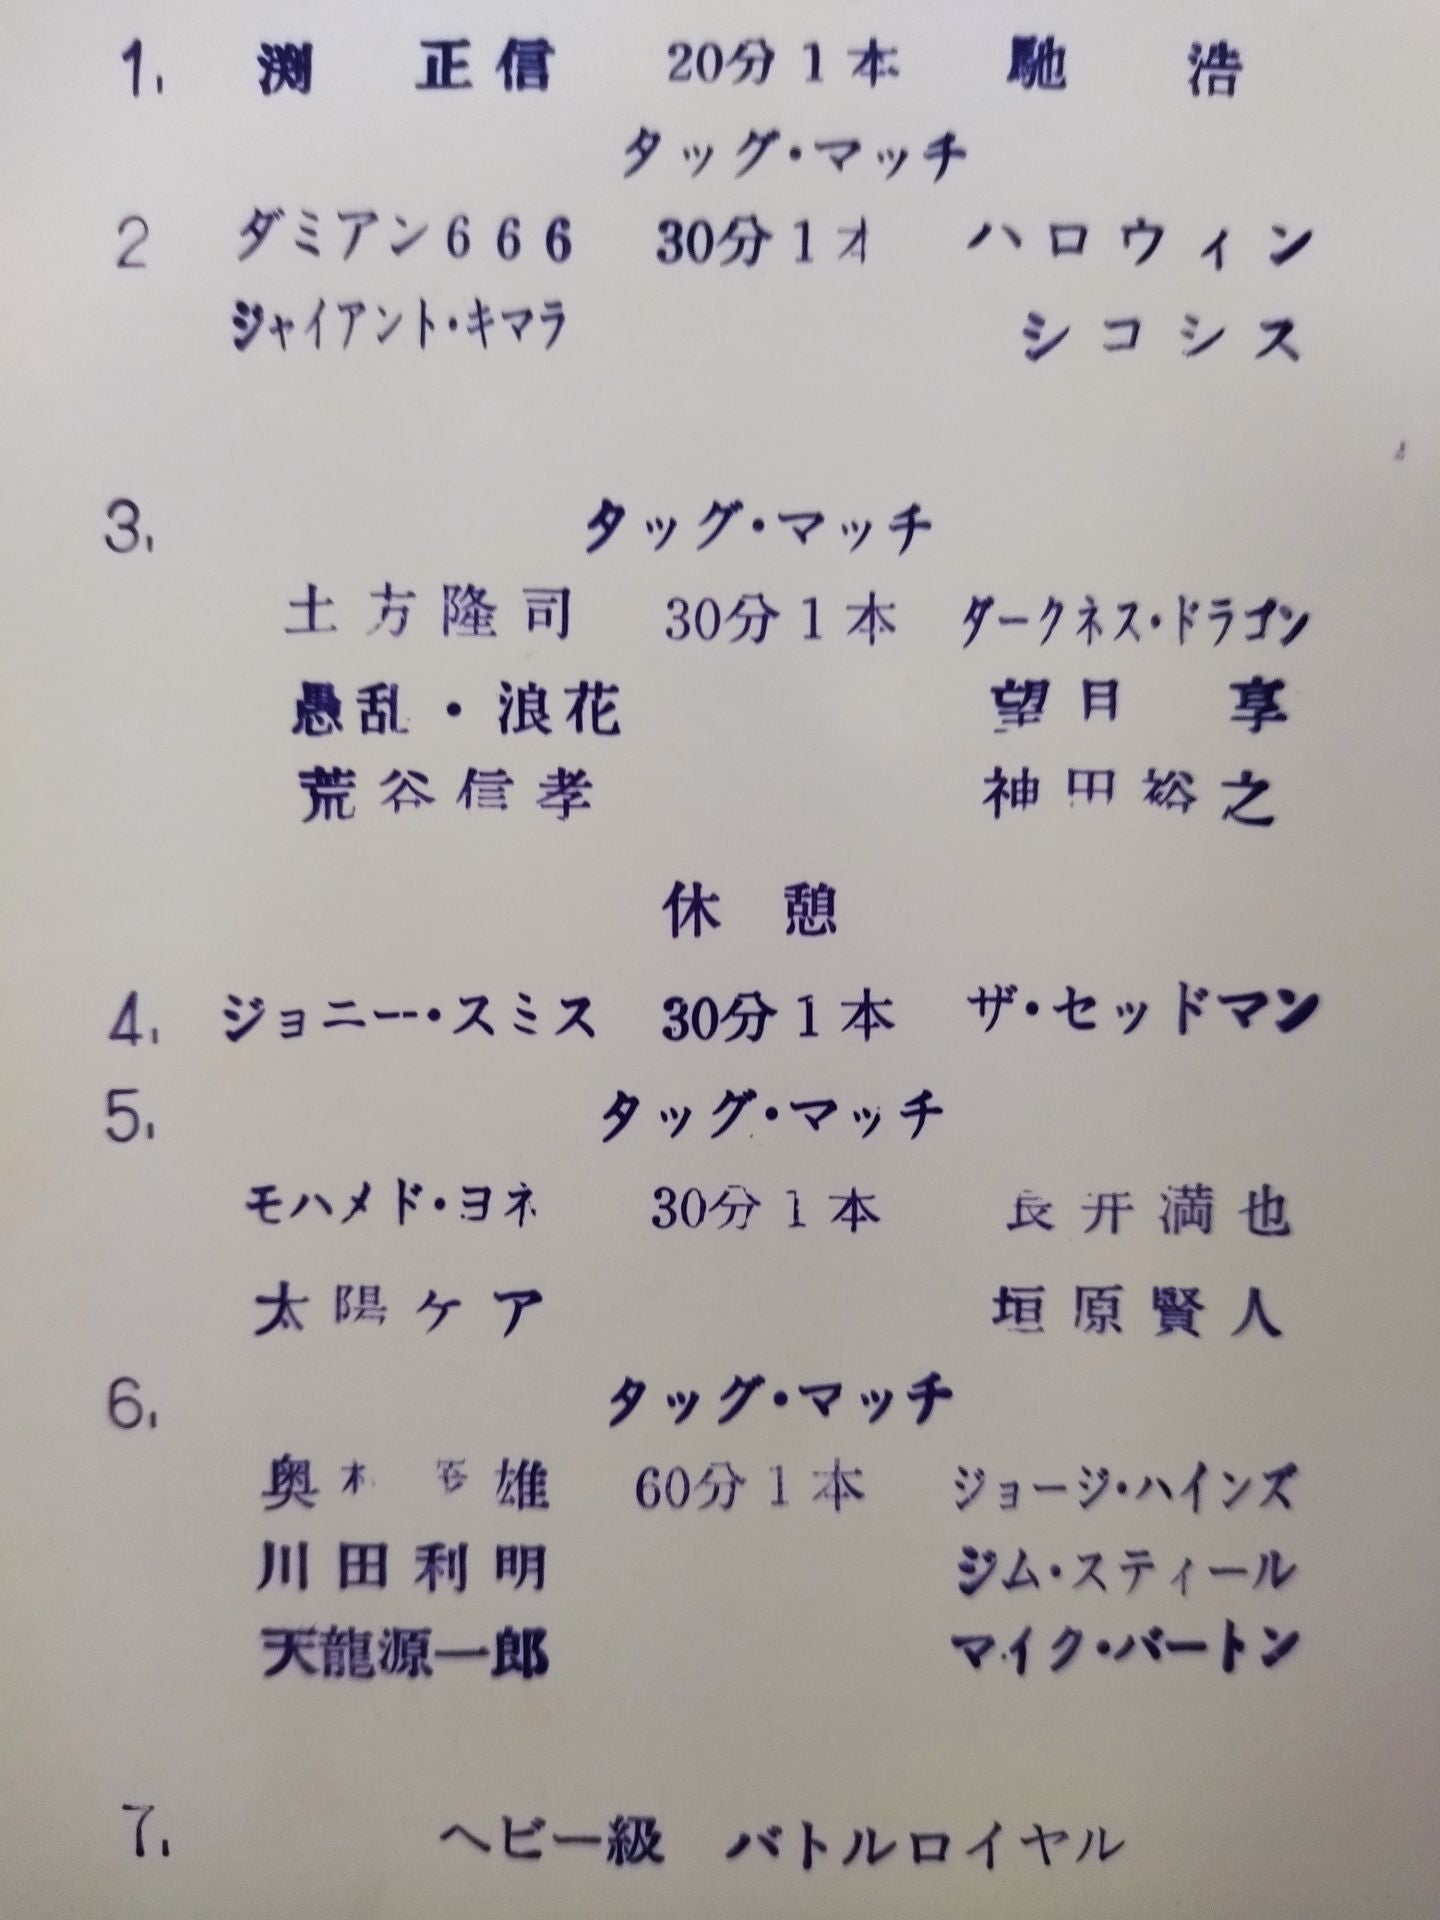 1. 渕 正信 20分1本 馳 浩
タッグ・マッチ
2 ダミアン666 30分1オ ハロウィン
ジャイアント・キマラ シコシス
3. タッグ・マッチ
土方隆司 30分1本 ダークネス・ドラゴン
愚乱・浪花 望月 享
荒谷信孝 神田裕之
休 憩
4. ジョニー・スミス 30分1本 ザ・セッドマン
5. タッグ・マッチ
モハメド・ヨネ 30分1本 長井満也
太陽ケア 垣原賢人
6. タッグ・マッチ
奥 雄 60分1本 ジョージ・ハインズ
川田利明 ジム・スティール
天龍源一郎 マイク・バートン
7. ヘビー級 バトルロイヤル